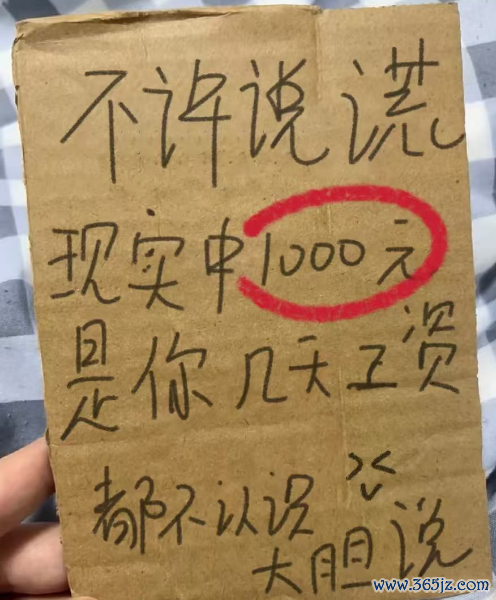 不许说谎
现实中1000元
是你几天工资
都不认识
大胆说
www.365jz.com